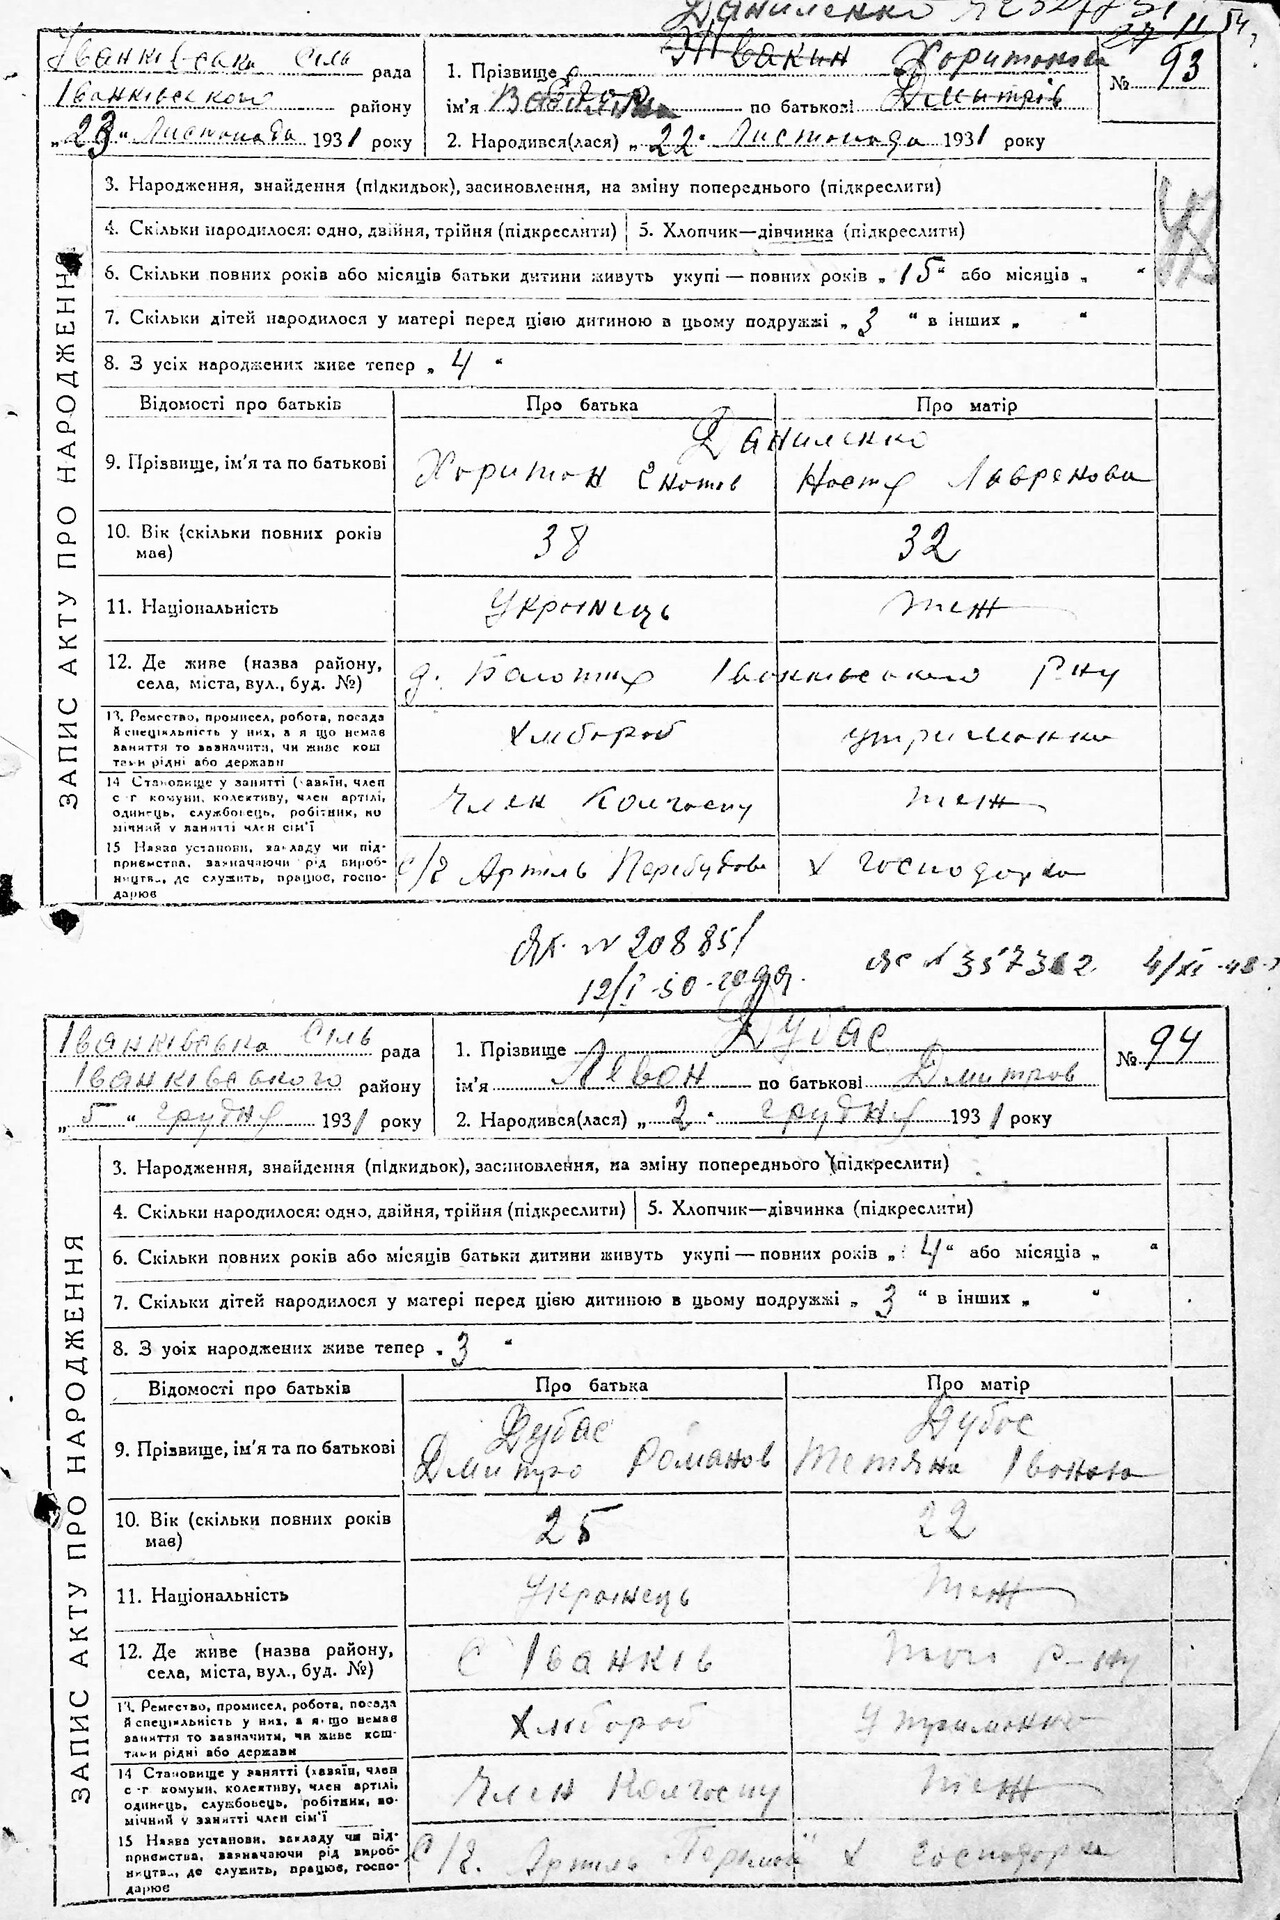 Даниленко
27 11 54
Іванківська сіль рада
Іванківського району
„23“ Листопада 1931 року
1. Прізвище Жвакин Харитонова
ім'я по батькові Дмытрів
2. Народився(лася) „22“ Листопада 1931 року
№ 93
ЗАПИС АКТУ ПРО НАРОДЖЕННЯ
3. Народження, знайдення (підкидьок), засиновлення, на зміну попереднього (підкреслити)
4. Скільки народилося: одно, двійня, трійня (підкреслити) 5. Хлопчик—дівчинка (підкреслити)
6. Скільки повних років або місяців батьки дитини живуть укупі — повних років „15“ або місяців „ “
7. Скільки дітей народилося у матері перед цією дитиною в цьому подружжі „3“ в інших „ “
8. З усіх народжених живе тепер „4“
Відомості про батьків Про батька Про матір
Даниленко
9. Прізвище, ім'я та по батькові Харитон Гнатов Настя Лавренова
10. Вік (скільки повних років має) 38 32
11. Національність Українець теж
12. Де живе (назва району, села, міста, вул., буд. №) Іванківського р-ну
13. Ремество, промисел, робота, посада й спеціяльність у них, а якщо немає заняття то зазначити, чи живе коштами рідні або держави Хлібороб утриманка
14 Становище у занятті (хазяїн, член с-г комуни, колективу, член артілі, одинець, службовець, робітник, помічний у занятті член сім'ї Член Колгоспу теж
15 Назва установи, закладу чи підприємства, зазначаючи рід виробництв., де служить, працює, господарює С/г Артиль Перебудова х господарка
№ 208851
12/I-50-года.
№ 357362 4/XI-48
Іванківська сіль рада
Іванківського району
„5“ грудня 1931 року
1. Прізвище Дубас
ім'я Левон по батькові Дмитров
2. Народився(лася) „2“ грудня 1931 року
№ 94
ЗАПИС АКТУ ПРО НАРОДЖЕННЯ
3. Народження, знайдення (підкидьок), засиновлення, на зміну попереднього (підкреслити)
4. Скільки народилося: одно, двійня, трійня (підкреслити) 5. Хлопчик—дівчинка (підкреслити)
6. Скільки повних років або місяців батьки дитини живуть укупі — повних років „4“ або місяців „ “
7. Скільки дітей народилося у матері перед цією дитиною в цьому подружжі „3“ в інших „ “
8. З усіх народжених живе тепер „3“
Відомості про батьків Про батька Про матір
Дубас Дубас
9. Прізвище, ім'я та по батькові Дмитро Романов Тетяна Іванова
10. Вік (скільки повних років має) 25 22
11. Національність Українець теж
12. Де живе (назва району, села, міста, вул., буд. №) С Іванків р-ну
13. Ремество, промисел, робота, посада й спеціяльність у них, а якщо немає заняття то зазначити, чи живе коштами рідні або держави Хлібороб Утриманка
14 Становище у занятті (хазяїн, член с-г комуни, колективу, член артілі, одинець, службовець, робітник, помічний у занятті член сім'ї Член Колгоспу теж
15 Назва установи, закладу чи підприємства, зазначаючи рід виробництв., де служить, працює, господарює С/г. Артиль х господарка